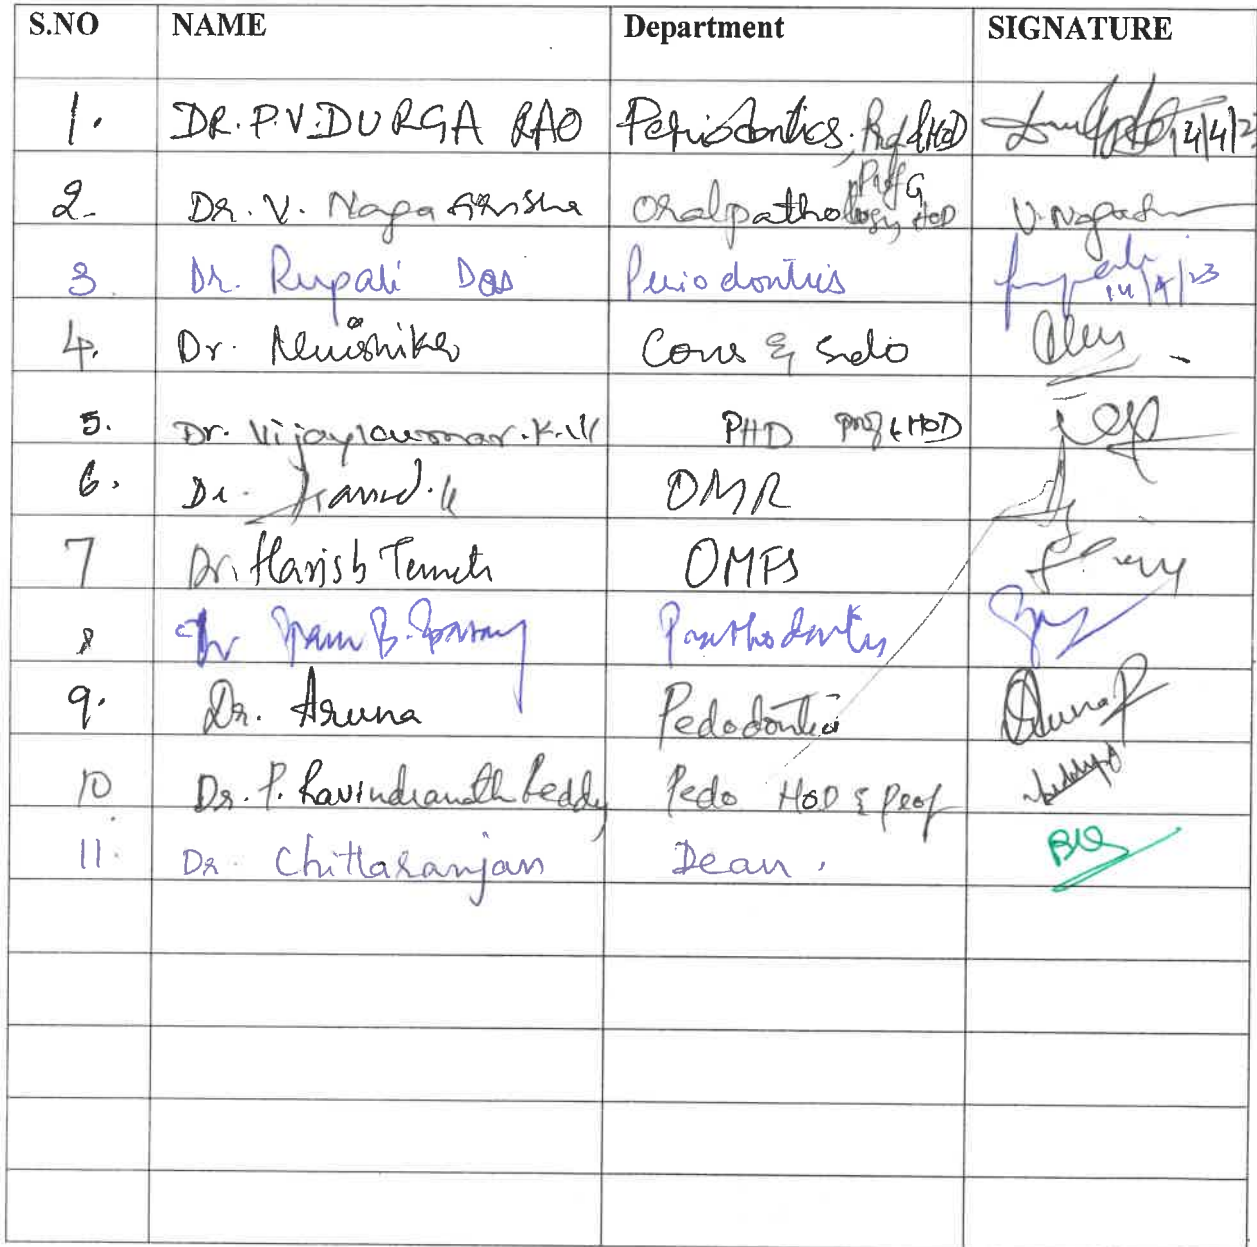 S.NO NAME Department SIGNATURE
1. DR. P.V. DURGA RAO Periodontics, Prof & HOD 14/4/23
2. Dr. V. Naga Prof &
Oral pathology HOD V. Naga
3. Dr. Rupali Das Periodontics Rupali
14/4/23
4. Dr. Cons & Endo
5. Dr. Vijaykumar. K.V PHD Prof & HOD
6. Dr. OMR
7 Dr. Harish OMFS
8 Dr B. Prosthodontics
9. Dr. Aruna Pedodontics Aruna
10 Dr. P. Ravindranath Reddy Pedo HOD & Prof
11. Dr. Chittaranjan Dean.